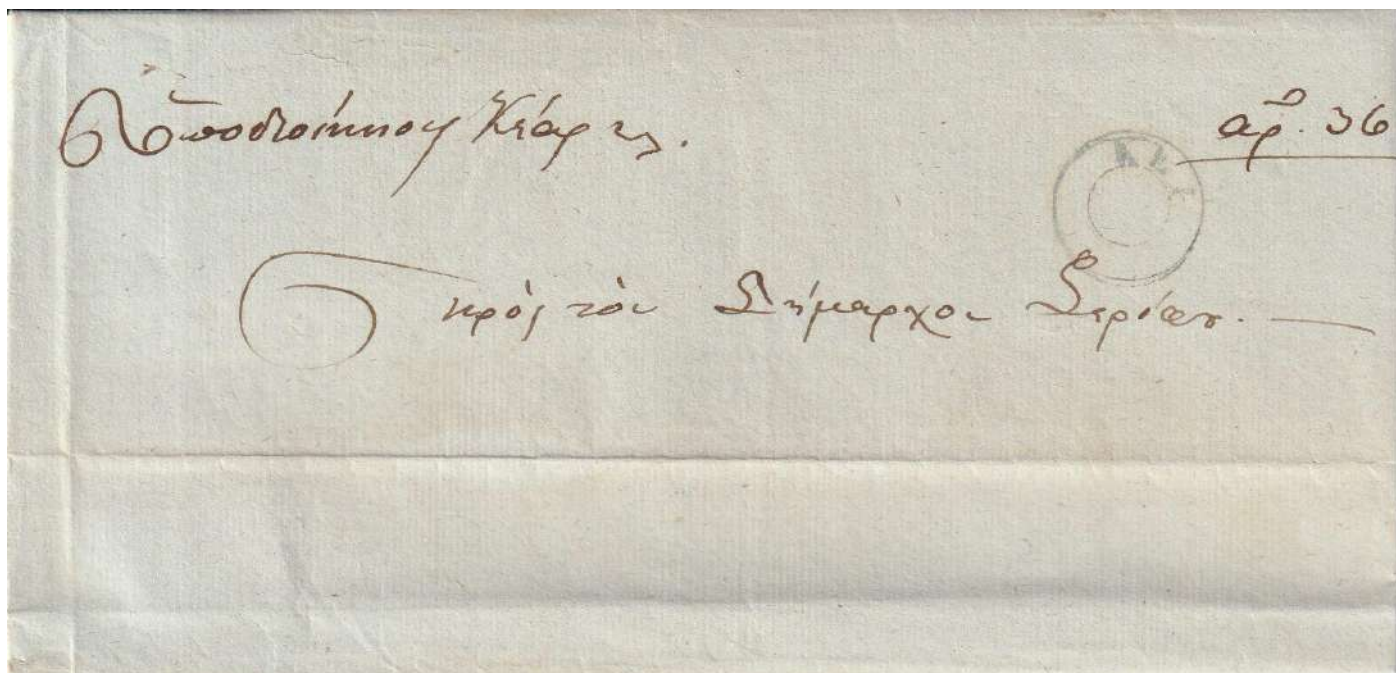 Ὑποδιοίκησις Κέας
ἀρ. 36
ΚΕΑ
πρὸς τὸν Δήμαρχον Σερίφου.